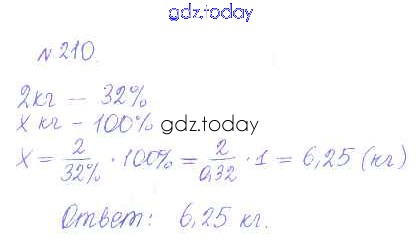 gdz.today
№ 210.
2 кг – 32%
x кг – 100%
gdz.today
x = 2/32% · 100% = 2/0,32 · 1 = 6,25 (кг)
Ответ: 6,25 кг.